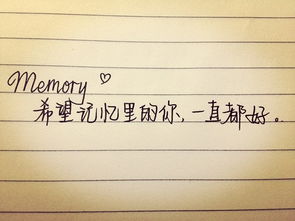 Memory ♡
希望记忆里的你，一直都好。